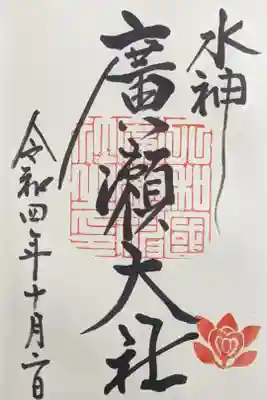 水神
廣瀬大社
令和四年十月二日